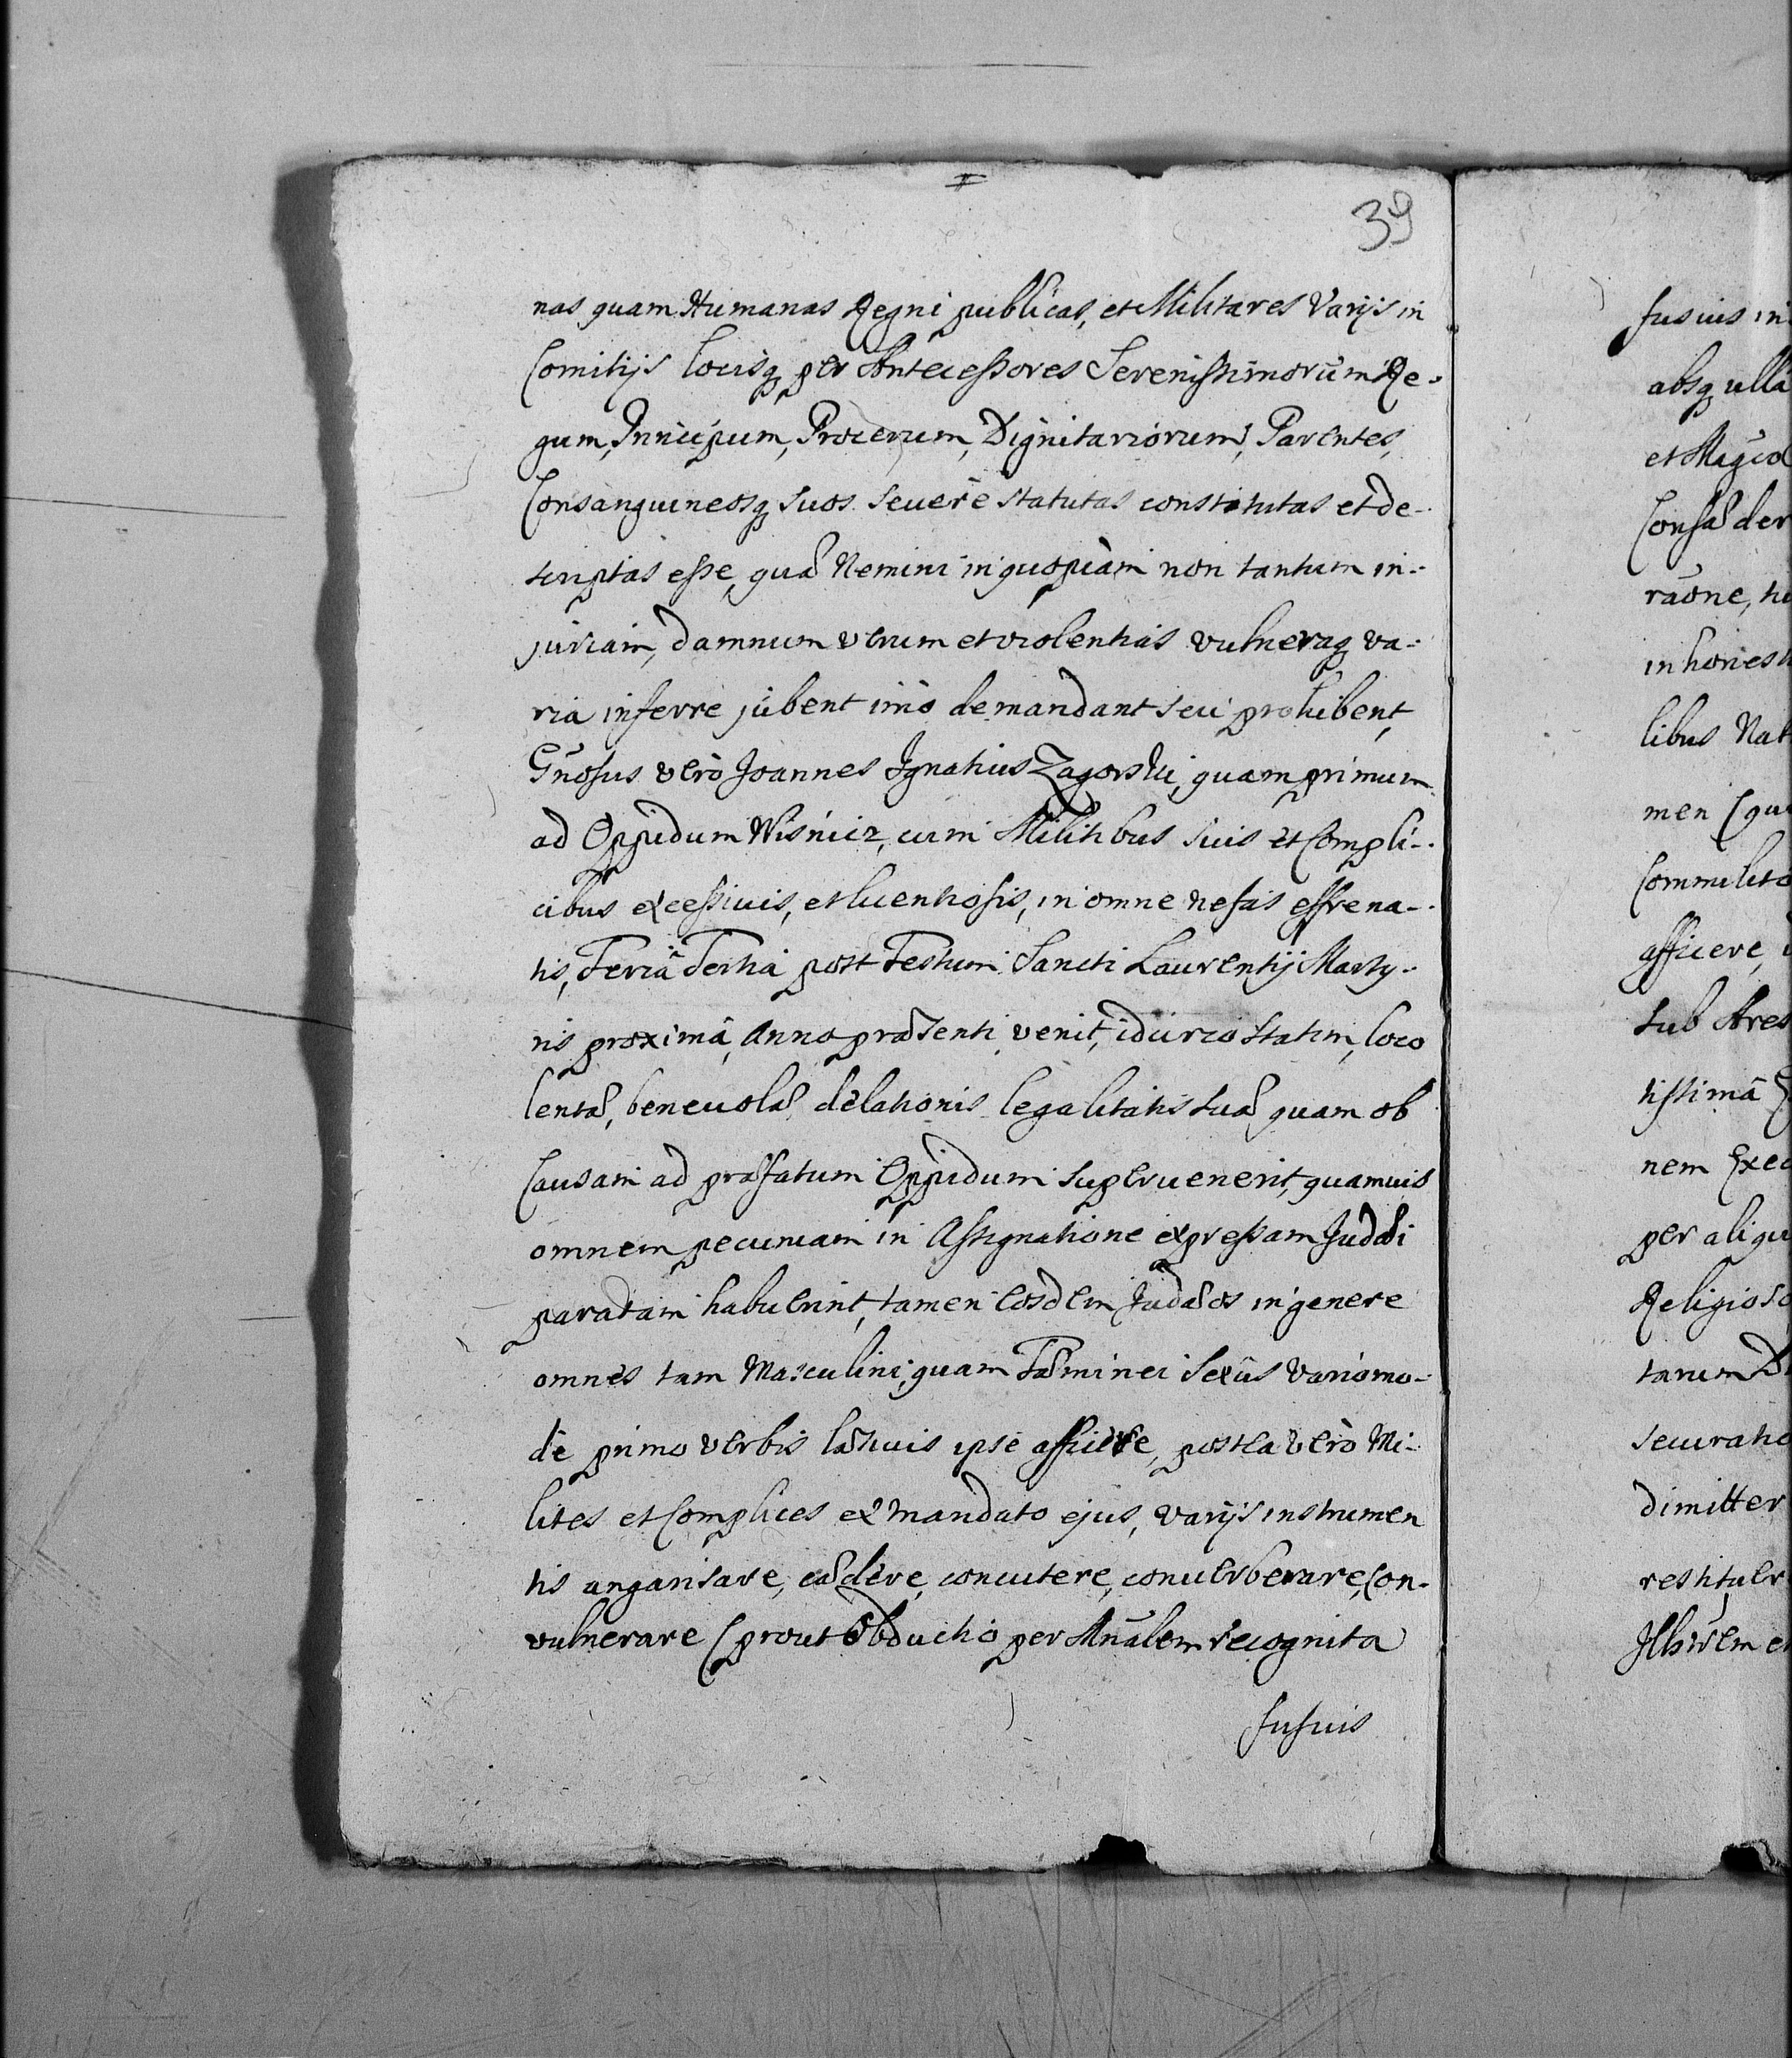 39
nas quam Humanas Regni publicas, et Militares Varijs in
Comitijs locisq per Antecessores Serenissimorum Re-
gum, Principum, Procerum, Dignitariorum, Parentes,
Consanguineosq suos severè statutas constitutas et de-
scriptas esse, quæ Nemini in quopiam non tantum in-
juriam, damnum verum et violentias vulneraq va-
ria inferre jubent imò demandant seu prohibent,
Gnosus verò Joannes Ignatius Zagorski, quam primum
ad Oppidum Wisnicz, cum Militibus suis et Compli-
cibus excessivis, et licentiosis, in omne nefas effrena-
tis, Feriâ Tertia post Festum Sancti Laurentij Marty-
ris proximâ, Anno præsenti venit, idcirco statim, loco
lentæ, benevolæ delationis legalitatis suæ quam ob
Causam ad præfatum Oppidum supervenerit, quamvis
omnem pecuniam in Assignatione expressam Judæi
paratam habuerint, tamen eosdem Judæos in genere
omnes tam Masculini, quam Fæminei Sexûs variomo-
dè primo verbis læsivis ipse afficere, postea verò Mi-
lites et Complices ex mandato ejus, varijs instrumen
tis angarisare, cædere, concutere, converberare, Con-
vulnerare (prout Obductio per Mnalem recognita
fusius
fusius in
absq ulla
et Magco
Consa der
raone, 
inhonest
libus Nat
men (qu
Commilito
afficere,
sub Ares
tissimâ
nem Exec
per aliqu
Religioso
tarum D
securatio
dimitter
restituer
Illsrem e